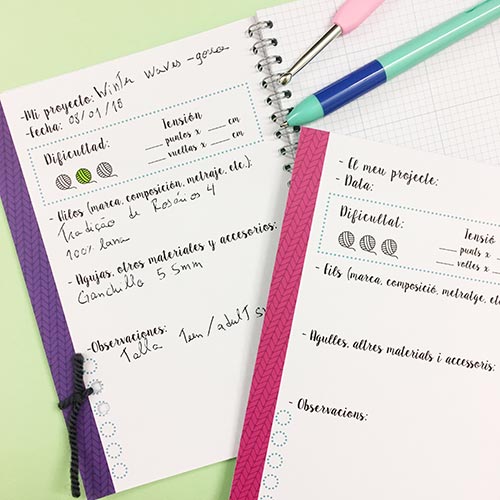 -Mi proyecto: Winter Waves - gorra
-Fecha: 08/01/18
Dificultad:
Tensión
puntos x cm
vueltas x cm
-Hilos (marca, composición, metraje, etc.):
Tradição de Rosários 4
100% lana
-Agujas, otros materiales y accesorios:
Ganchillo 5 5mm
-Observaciones:
Talla Teen/adult
- El meu projecte:
- Data:
Dificultat:
Tensió
punts x
voltes x
- Fils (marca, composició, metratge, etc
- Agulles, altres materials i accessoris:
- Observacions: